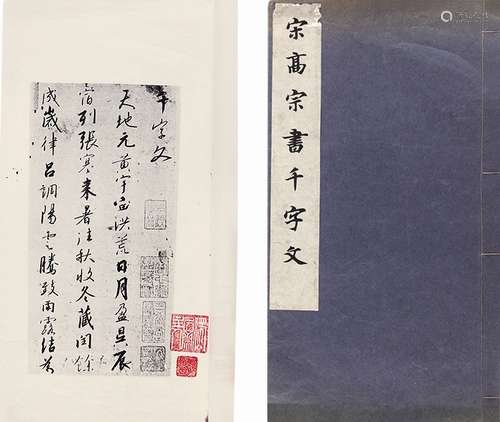 宋髙宗書千字文
千字文
天地元黄宇宙洪荒日月盈昃辰
宿列張寒来暑往秋收冬藏閏餘
成歲律呂調陽雲騰致雨露結為